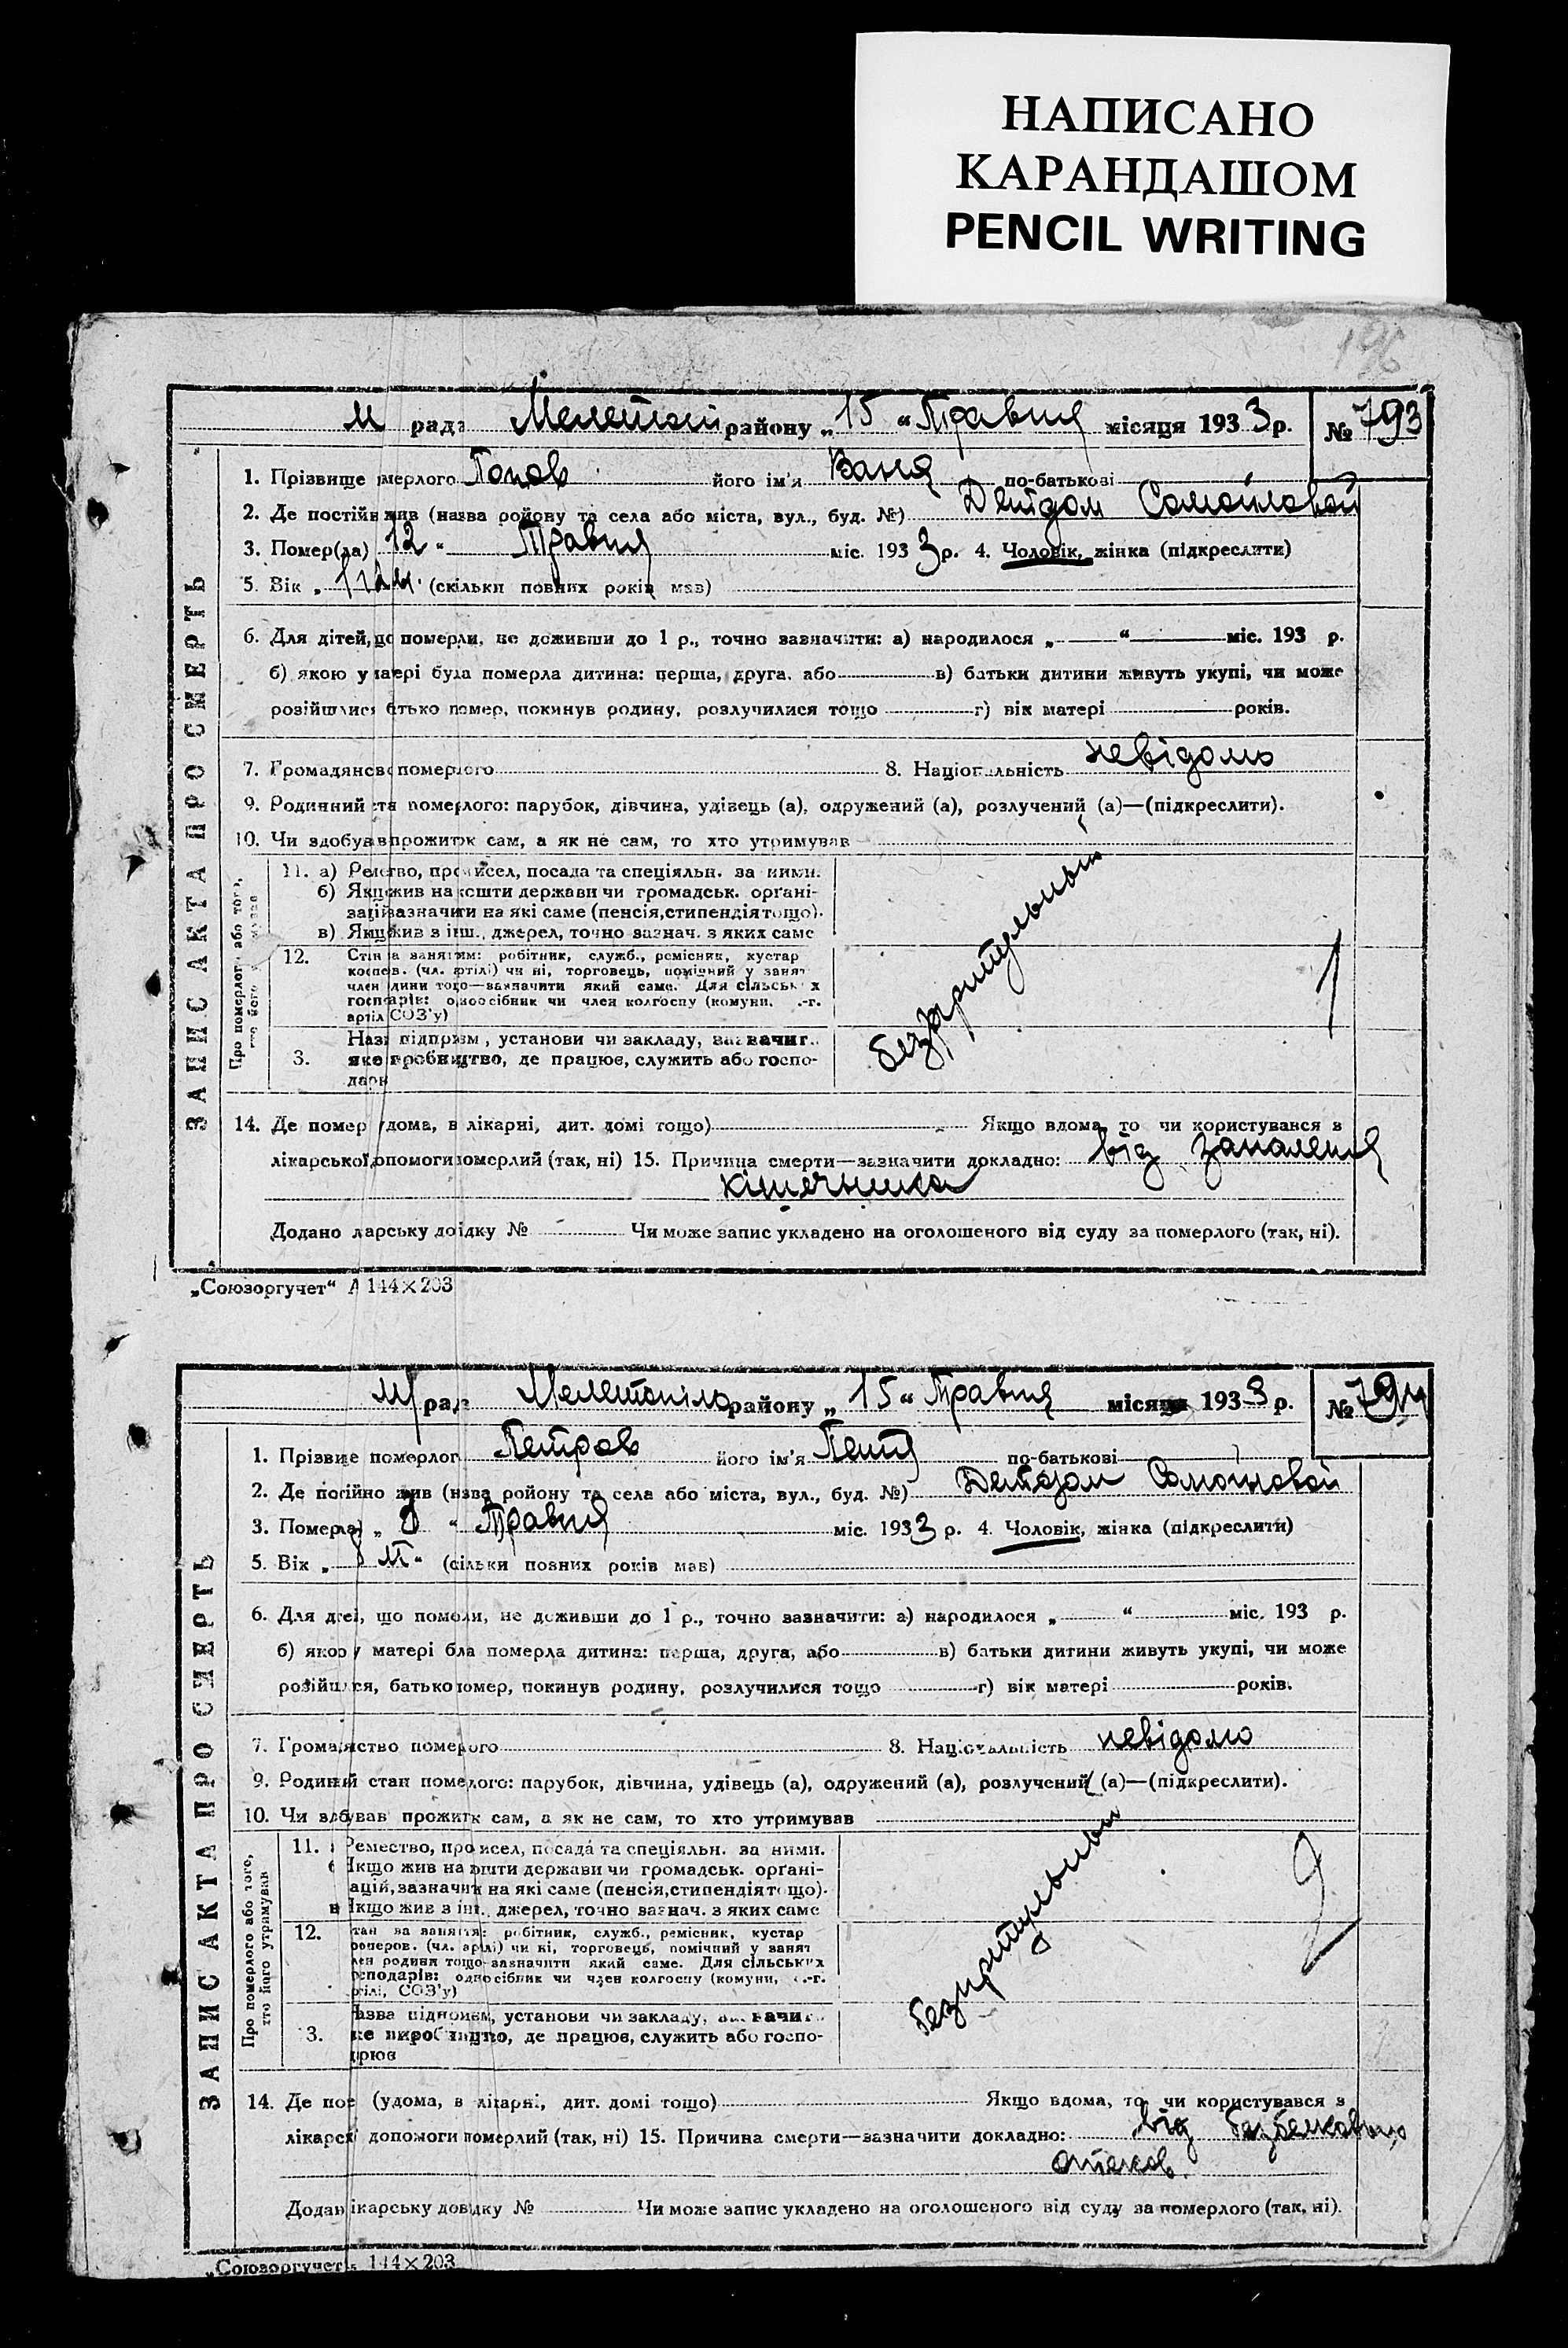 НАПИСАНО
КАРАНДАШОМ
PENCIL WRITING
196
м рада району „15“ Травня місяця 1933 р. № 793
ЗАПИС АКТА ПРО СМЕРТЬ
1. Прізвище мерлого Попов його ім'я Ваня по-батькові
2. Де постійн жив (назва ройону та села або міста, вул., буд. №) Детдом Самойловой
3. Помер(ла) 12 “ Травня міс. 1933 р. 4. Чоловік, жінка (підкреслити)
5. Вік „ (скільки повних років мав)
6. Для дітей, що померли, не доживши до 1 р., точно зазначити: а) народилося „ “ міс. 193 р.
б) якою у матері була померла дитина: перша, друга, або в) батьки дитини живуть укупі, чи може
розійшлися батько помер, покинув родину, розлучилися тощо г) вік матері років.
7. Громадянсв померлого 8. Національність невідомо
9. Родинний ста померлого: парубок, дівчина, удівець (а), одружений (а), розлучений (а)—(підкреслити).
10. Чи здобував прожиток сам, а як не сам, то хто утримував
Про померлого або того,
11. а) Ремество, промисел, посада та спеціяльн. за ними.
б) Якщо жив на кошти держави чи громадськ. орґані-
зацій зазначити на які саме (пенсія, стипендія тощо).
в) Якщо жив з інш., джерел, точно зазнач. з яких саме
безпритульный
1
12. Стан за заняттям: робітник, служб., ремісник, кустар
коопер. (чл. артілі) чи ні, торговець, помічний у занят
член родини того—зазначити який саме. Для сільських
господарів: одноосібник чи член колгоспу (комуни, с.-г.
артіл СОЗ'у)
3. Назв підприєм, установи чи закладу, зазначит.
яке виробництво, де працює, служить або госпо-
дарює
14. Де помер (удома, в лікарні, дит. домі тощо) Якщо вдома, то чи користувався з
лікарської допомоги померлий (так, ні) 15. Причина смерти—зазначити докладно: від запалення
кішечника
Додано лікарську довідку № Чи може запис укладено на оголошеного від суду за померлого (так, ні).
„Союзоргучет“ А 144×203
м рад району „15“ Травня місяця 1933 р. № 794
ЗАПИС АКТА ПРО СМЕРТЬ
1. Прізвище померлог Петров його ім'я Петя по-батькові
2. Де постійно жив (назва ройону та села або міста, вул., буд. №) Детдом Самойловой
3. Помер(ла) „ 8 “ Травня міс. 1933 р. 4. Чоловік, жінка (підкреслити)
5. Вік „ 8 м “ (скільки повних років мав)
6. Для дітей, що померли, не доживши до 1 р., точно зазначити: а) народилося „ “ міс. 193 р.
б) якою у матері була померла дитина: перша, друга, або в) батьки дитини живуть укупі, чи може
розійшлися, батько помер, покинув родину, розлучилися тощо г) вік матері років.
7. Громадянство померлого 8. Національність невідомо
9. Родинний стан померлого: парубок, дівчина, удівець (а), одружений (а), розлучений (а)—(підкреслити).
10. Чи здобував прожиток сам, а як не сам, то хто утримував
Про померлого або того,
хто його утримував
11. Ремество, промисел, посада та спеціяльн. за ними.
Якщо жив на кошти держави чи громадськ. орґані-
зацій, зазначит на які саме (пенсія, стипендія тощо).
в Якщо жив з інш., джерел, точно зазнач. з яких саме
безпритульный
2
12. стан за заняття: робітник, служб., ремісник, кустар
кооперов. (чл. артілі) чи ні, торговець, помічний у занят
член родини тощо—зазначити який саме. Для сільських
господарів: одноосібник чи член колгоспу (комуни, с.-г.
артілі, СОЗ'у)
3. Назва підприєм, установи чи закладу, зазначит.
яке виробництво, де працює, служить або госпо-
дарює
14. Де помер (удома, в лікарні, дит. домі тощо) Якщо вдома, то чи користувався з
лікарськ допомоги померлий (так, ні) 15. Причина смерти—зазначити докладно: від безбелковых
отеков.
Додан лікарську довідку № Чи може запис укладено на оголошеного від суду за померлого (так, ні).
„Союзоргучет“ 144×203